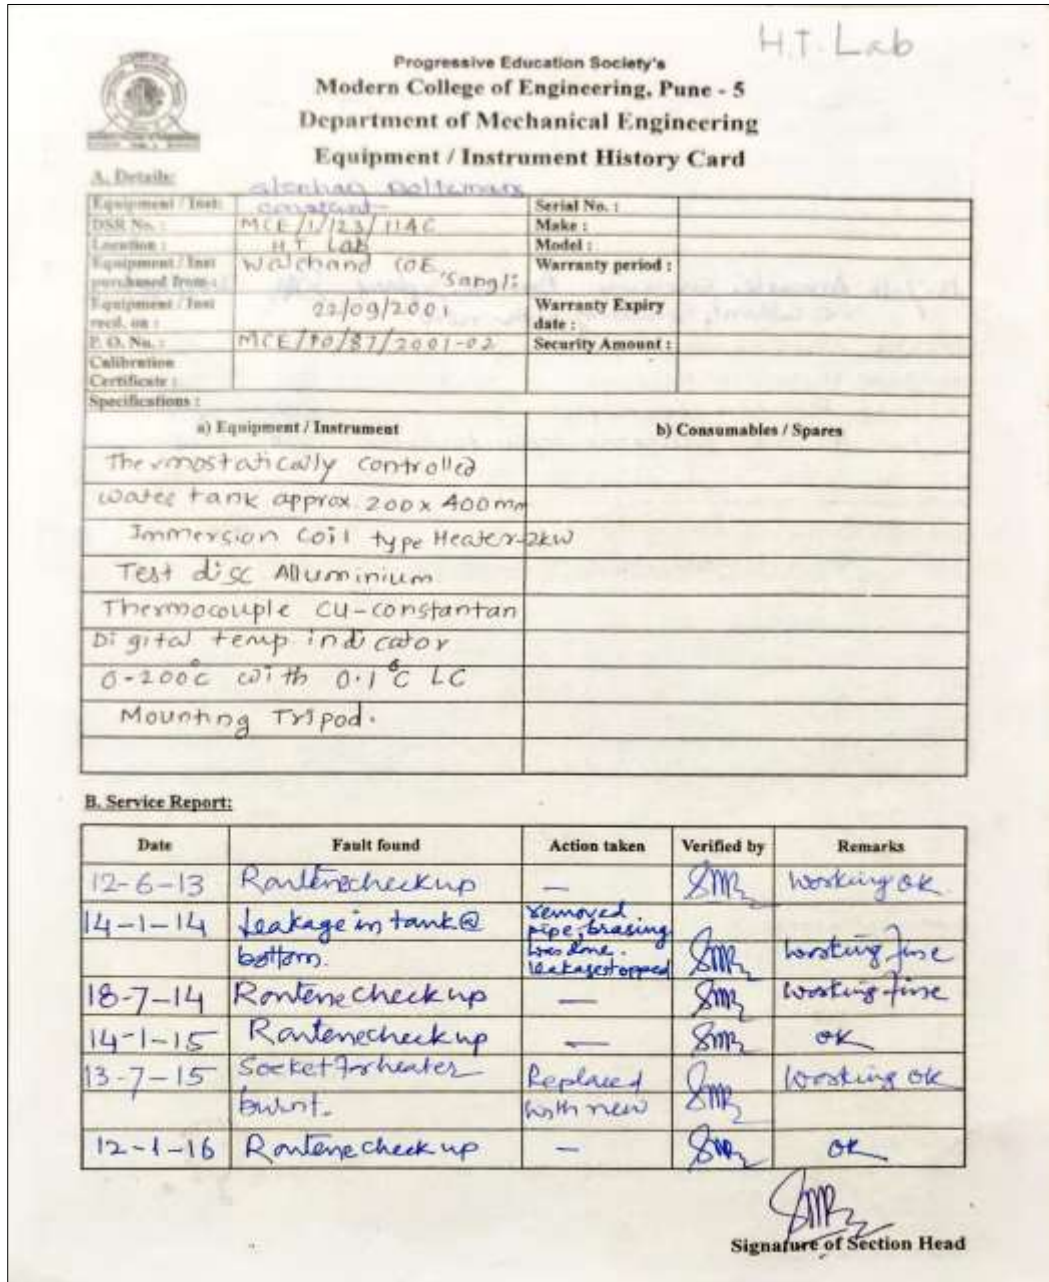 H.T. Lab
Progressive Education Society's
Modern College of Engineering, Pune - 5
Department of Mechanical Engineering
Equipment / Instrument History Card
A. Details:
Equipment / Inst: constant Serial No. :
DSR No. : MCE/1/123/114C Make :
Location : H.T. Lab Model :
Equipment / Inst purchased from : Walchand COE, Sangli Warranty period :
Equipment / Inst recd. on : 22/09/2001 Warranty Expiry date :
P. O. No. : MCE/PO/87/2001-02 Security Amount :
Calibration
Certificate :
Specifications :
a) Equipment / Instrument b) Consumables / Spares
Thermostatically controlled
water tank approx. 200 x 400mm
Immersion coil type Heater-2kW
Test disc Alluminium
Thermocouple CU-constantan
Digital temp indicator
0-200°c with 0.1°C LC
Mounting Tripod.
B. Service Report:
Date Fault found Action taken Verified by Remarks
12-6-13 Routenecheckup — SMR working ok
14-1-14 leakage in tank @ removed
pipe, brasing
bottom. was done. SMR working fine
leakage stopped
18-7-14 Routene check up — SMR working fine
14-1-15 Routenecheckup — SMR ok
13-7-15 Socket for heater Replaced SMR working ok
burnt. with new
12-1-16 Routene check up — SMR ok
SMR
Signature of Section Head